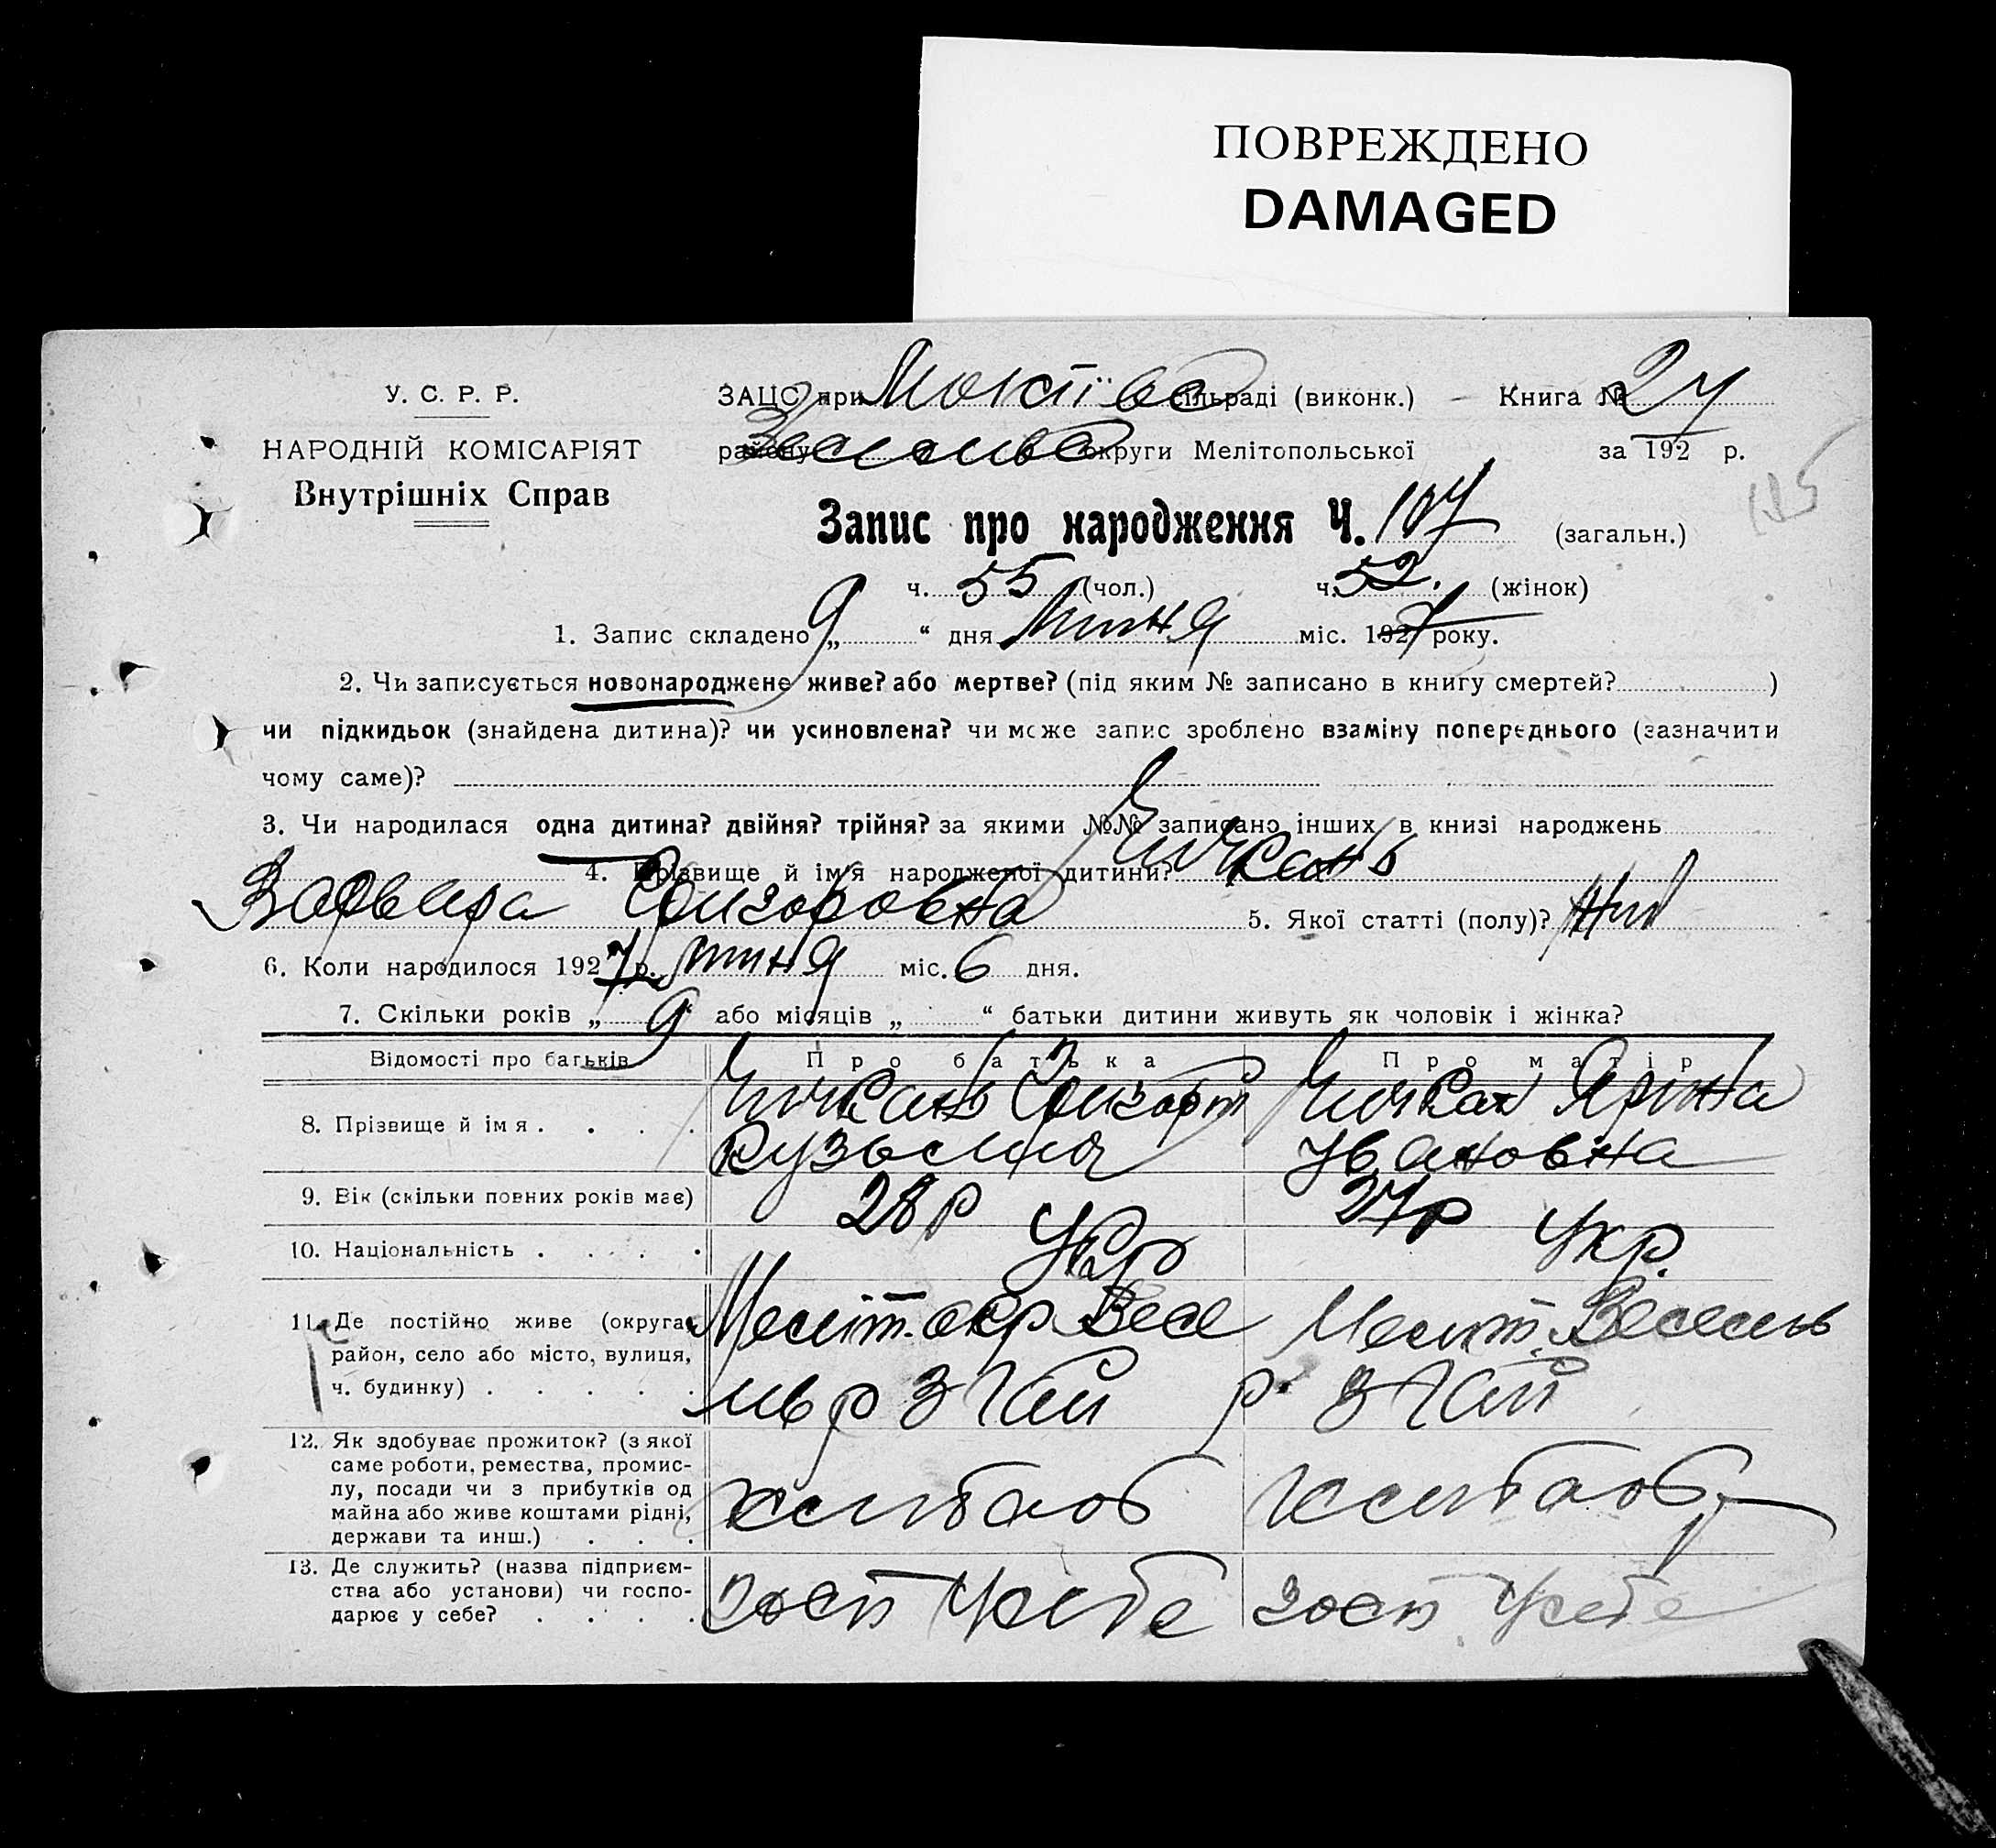 ПОВРЕЖДЕНО
DAMAGED
У. С. Р. Р.
НАРОДНІЙ КОМІСАРІЯТ
Внутрішніх Справ
ЗАЦС при сільраді (виконк.) Книга №
району округи Мелітопольської за 192 р.
Запис про народження Ч. 107 (загальн.)
ч. 55 (чол.) ч. 52. (жінок)
1. Запис складено „9“ дня липня міс. 1927 року.
2. Чи записується новонароджене живе? або мертве? (під яким № записано в книгу смертей? )
чи підкидьок (знайдена дитина)? чи усиновлена? чи може запис зроблено взаміну попереднього (зазначити
чому саме)?
3. Чи народилася одна дитина? двійня? трійня? за якими №№ записано інших в книзі народжень
4. Прізвище й ім'я народженої дитини? Чичкань
Варвара Григоровна 5. Якої статті (полу)? Жін
6. Коли народилося 1927 р. липня міс. 6 дня.
7. Скільки років „9“ або місяців „ “ батьки дитини живуть як чоловік і жінка?
Відомості про батьків Про батька Про матір
8. Прізвище й ім'я . . . . Чичкань Григорій Чичкан Ярина
Кузьмич Ивановна
9. Вік (скільки повних років має) 28 р 27 р
10. Національність . . . . Укр Укр.
11. Де постійно живе (округа, район, село або місто, вулиця, ч. будинку) . . . . . Меліт. окр Весе Меліт. Весельв
лів р З Гай р. З Гай
12. Як здобуває прожиток? (з якої саме роботи, ремества, промислу, посади чи з прибутків од майна або живе коштами рідні, держави та инш.) . . . хлібороб хлібороб
13. Де служить? (назва підприємства або установи) чи господарює у себе? . . . . госп у себе госп у себе